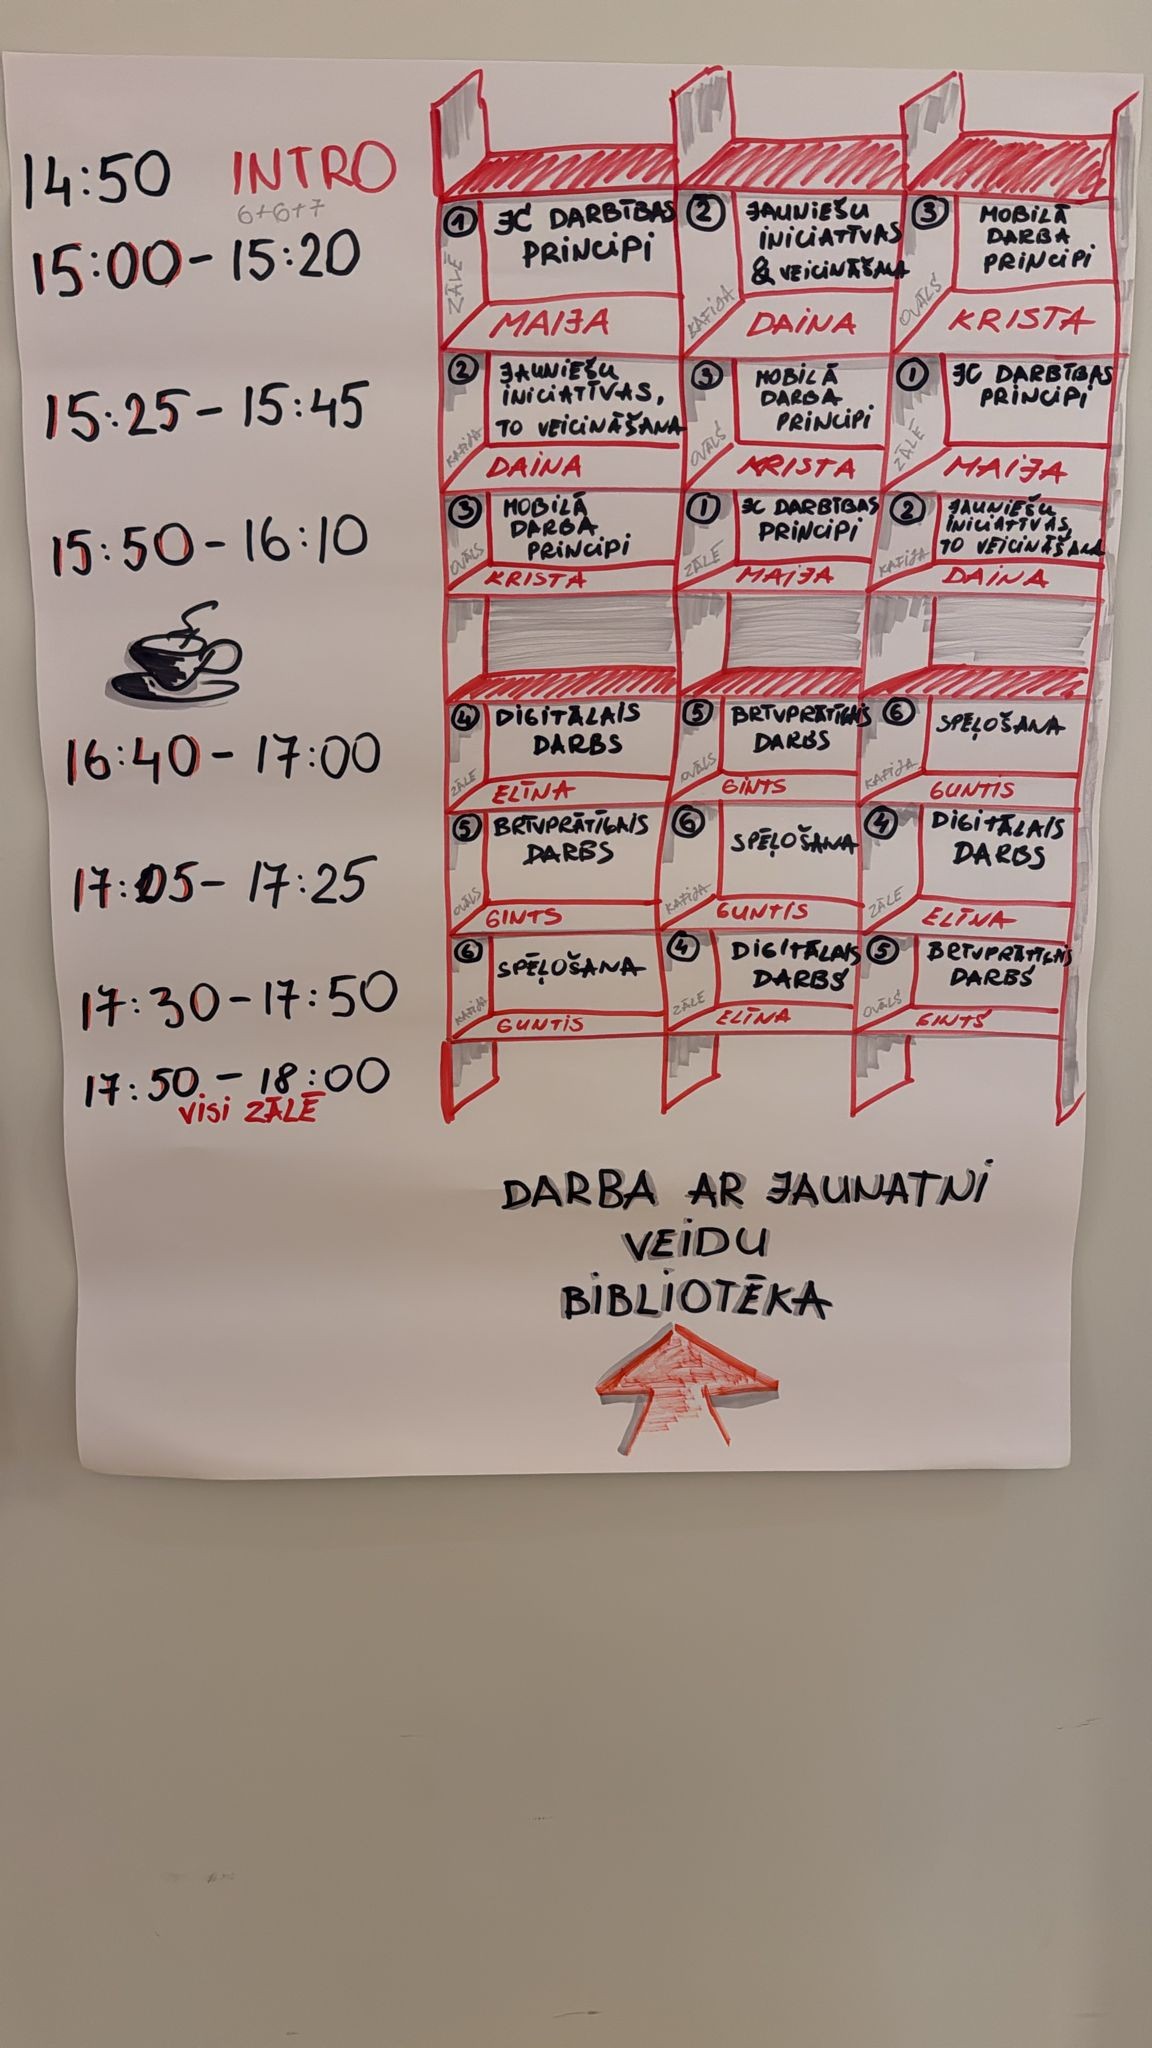 14:50 INTRO
6+6+7
15:00 - 15:20
① JC DARBĪBAS PRINCIPI
ZĀLE
MAIJA
② JAUNIEŠU INICIATĪVAS & VEICINĀŠANA
KAFIJA
DAINA
③ MOBILĀ DARBA PRINCIPI
OVĀLS
KRISTA
15:25 - 15:45
② JAUNIEŠU INICIATĪVAS, TO VEICINĀŠANA
KAFIJA
DAINA
③ MOBILĀ DARBA PRINCIPI
OVĀLS
KRISTA
① JC DARBĪBAS PRINCIPI
ZĀLE
MAIJA
15:50 - 16:10
③ MOBILĀ DARBA PRINCIPI
OVĀLS
KRISTA
① JC DARBĪBAS PRINCIPI
ZĀLE
MAIJA
② JAUNIEŠU INICIATĪVAS, TO VEICINĀŠANA
KAFIJA
DAINA
16:40 - 17:00
④ DIGITĀLAIS DARBS
ZĀLE
ELĪNA
⑤ BRĪVPRĀTĪGAIS DARBS
OVĀLS
GINTS
⑥ SPĒĻOŠANA
KAFIJA
GUNTIS
17:05 - 17:25
⑤ BRĪVPRĀTĪGAIS DARBS
OVĀLS
GINTS
⑥ SPĒĻOŠANA
KAFIJA
GUNTIS
④ DIGITĀLAIS DARBS
ZĀLE
ELĪNA
17:30 - 17:50
⑥ SPĒĻOŠANA
KAFIJA
GUNTIS
④ DIGITĀLAIS DARBS
ZĀLE
ELĪNA
⑤ BRĪVPRĀTĪGAIS DARBS
OVĀLS
GINTS
17:50 - 18:00
VISI ZĀLĒ
DARBA AR JAUNATNI
VEIDU
BIBLIOTĒKA